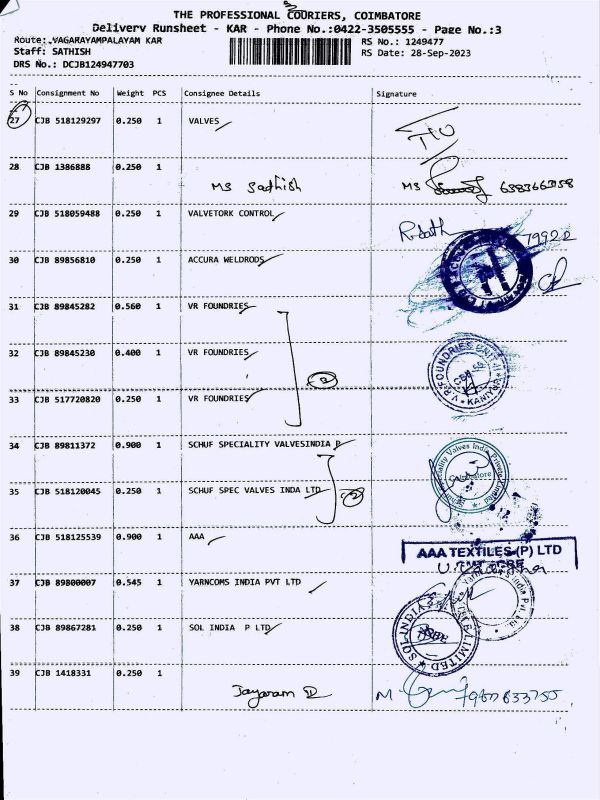 THE PROFESSIONAL COURIERS, COIMBATORE
Delivery Runsheet - KAR - Phone No.:0422-3505555 - Page No.:3
Route:.VAGARAYAMPALAYAM KAR RS No.: 1249477
Staff: SATHISH RS Date: 28-Sep-2023
DRS No.: DCJB124947703
S No Consignment No Weight PCS Consignee Details Signature
27 CJB 518129297 0.250 1 VALVES
28 CJB 1386888 0.250 1
MS Sathish MS
29 CJB 518059488 0.250 1 VALVETORK CONTROL
30 CJB 89856810 0.250 1 ACCURA WELDRODS
31 CJB 89845282 0.560 1 VR FOUNDRIES
32 CJB 89845230 0.400 1 VR FOUNDRIES
V.R.FOUNDRIES UNIT-II
33 CJB 517720820 0.250 1 VR FOUNDRIES
34 CJB 89811372 0.900 1 SCHUF SPECIALITY VALVESINDIA P
Speciality Valves India Private Limited
35 CJB 518120045 0.250 1 SCHUF SPEC VALVES INDA LTD
36 CJB 518125539 0.900 1 AAA
AAA TEXTILES (P) LTD
37 CJB 89800007 0.545 1 YARNCOMS INDIA PVT LTD
38 CJB 89867281 0.250 1 SOL INDIA P LTD
SOL INDIA PRIVATE LIMITED
39 CJB 1418331 0.250 1
Jayaram D